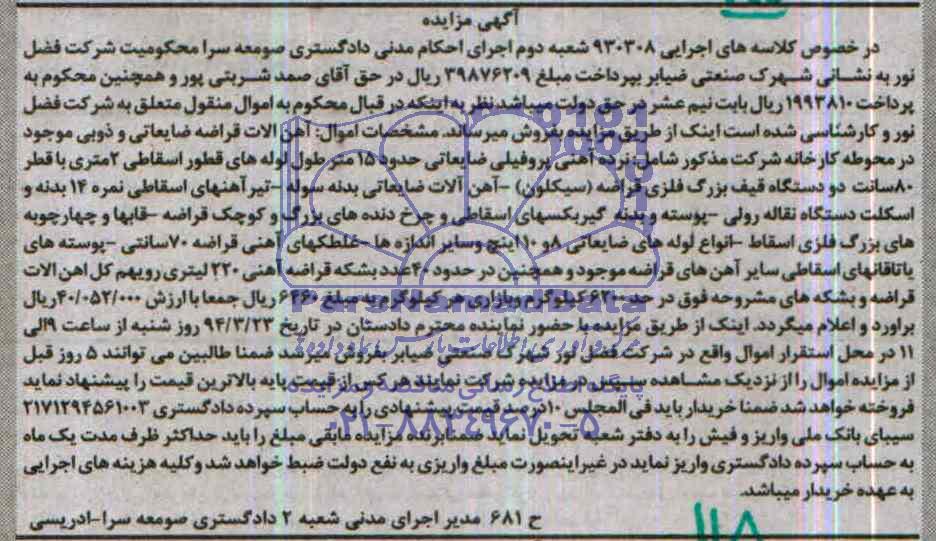 آگهی مزایده
در خصوص کلاسه های اجرایی ۹۳۰۳۰۸ شعبه دوم اجرای احکام مدنی دادگستری صومعه سرا محکومیت شرکت فضل
نور به نشانی شهرک صنعتی ضیابر بپرداخت مبلغ ۳۹۸۷۶۲۰۹ ریال در حق آقای صمد شربتی پور و همچنین محکوم به
پرداخت ۱۹۹۳۸۱۰ ریال بابت نیم عشر در حق دولت میباشد نظر به اینکه در قبال محکوم به اموال منقول متعلق به شرکت فضل
نور و کارشناسی شده است اینک از طریق مزایده بفروش میرساند. مشخصات اموال: آهن الات قراضه ضایعاتی و ذوبی موجود
در محوطه کارخانه شرکت مذکور شامل: نرده آهنی پروفیلی ضایعاتی حدود ۱۵ متر طول لوله های قطور اسقاطی ۲متری با قطر
۸۰سانت دو دستگاه قیف بزرگ فلزی قراضه (سیکلون) -آهن آلات ضایعاتی بدنه سوله -تیرآهنهای اسقاطی نمره ۱۴ بدنه و
اسکلت دستگاه نقاله رولی -پوسته و بدنه گیربکسهای اسقاطی و چرخ دنده های بزرگ و کوچک قراضه -قابها و چهارچوبه
های بزرگ فلزی اسقاط -انواع لوله های ضایعاتی ۸و ۱۰اینچ وسایر اندازه ها -غلطکهای آهنی قراضه ۷۰سانتی -پوسته های
یاتاقانهای اسقاطی سایر آهن های قراضه موجود و همچنین در حدود ۴۰عدد بشکه قراضه آهنی ۲۲۰ لیتری رویهم کل اهن الات
قراضه و بشکه های مشروحه فوق در حد ۶۲۰۰ کیلوگرم وبازاری هر کیلوگرم به مبلغ ۶۴۶۰ ریال جمعا با ارزش ۴۰/۰۵۲/۰۰۰ریال
براورد و اعلام میگردد. اینک از طریق مزایده با حضور نماینده محترم دادستان در تاریخ ۹۴/۳/۲۳ روز شنبه از ساعت ۹الی
۱۱ در محل استقرار اموال واقع در شرکت فضل نور شهرک صنعتی ضیابر بفروش می رسد ضمنا طالبین می توانند ۵ روز قبل
از مزایده اموال را از نزدیک مشاهده سپس در مزایده شرکت نمایند هر کس از قیمت پایه بالاترین قیمت را پیشنهاد نماید
فروخته خواهد شد ضمنا خریدار باید فی المجلس ۱۰درصد قیمت پیشنهادی را به حساب سپرده دادگستری ۲۱۷۱۲۹۴۵۶۱۰۰۳
سیبای بانک ملی واریز و فیش را به دفتر شعبه تحویل نماید ضمنا برنده مزایده مابقی مبلغ را باید حداکثر ظرف مدت یک ماه
به حساب سپرده دادگستری واریز نماید در غیر اینصورت مبلغ واریزی به نفع دولت ضبط خواهد شد وکلیه هزینه های اجرایی
به عهده خریدار میباشد.
ح ۶۸۱ مدیر اجرای مدنی شعبه ۲ دادگستری صومعه سرا-ادریسی
ParsNamadData
۰۲۱-۸۸۳۴۹۶۷۰-۵
۱۱۸